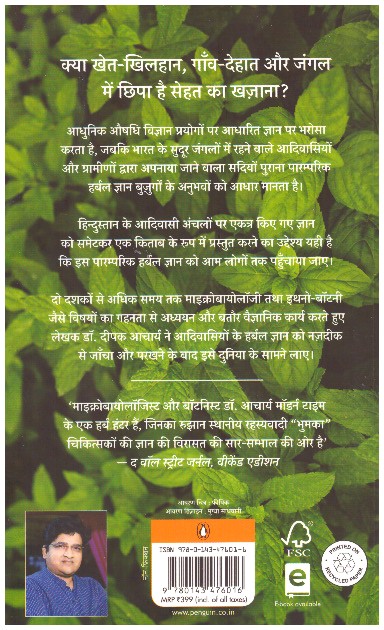 क्या खेत-खिलहान, गाँव-देहात और जंगल
में छिपा है सेहत का खज़ाना?
आधुनिक औषधि विज्ञान प्रयोगों पर आधारित ज्ञान पर भरोसा
करता है, जबकि भारत के सुदूर जंगलों में रहने वाले आदिवासियों
और ग्रामीणों द्वारा अपनाया जाने वाला सदियों पुराना पारम्परिक
हर्बल ज्ञान बुजुर्गों के अनुभवों को आधार मानता है।
हिन्दुस्तान के आदिवासी अंचलों पर एकत्र किए गए ज्ञान
को समेटकर एक किताब के रूप में प्रस्तुत करने का उद्देश्य यही है
कि इस पारम्परिक हर्बल ज्ञान को आम लोगों तक पहुँचाया जाए।
दो दशकों से अधिक समय तक माइक्रोबायोलॉजी तथा इथनो-बॉटनी
जैसे विषयों का गहनता से अध्ययन और बतौर वैज्ञानिक कार्य करते हुए
लेखक डॉ. दीपक आचार्य ने आदिवासियों के हर्बल ज्ञान को नज़दीक
से जाँचा और परखने के बाद इसे दुनिया के सामने लाए।
‘माइक्रोबायोलॉजिस्ट और बॉटनिस्ट डॉ. आचार्य मॉडर्न टाइम
के एक हर्ब हंटर हैं, जिनका रुझान स्थानीय रहस्यवादी “भुमका”
चिकित्सकों की ज्ञान की विरासत की सार-सम्भाल की ओर है’
— द वॉल स्ट्रीट जर्नल, वीकेंड एडीशन
आवरण चित्र :
आवरण डिज़ाइन :
ISBN 978-0-143-47601-6
9 780143 476016
MRP ₹399 (incl. of all taxes)
www.penguin.co.in
FSC
e
E-book available
PRINTED ON
RECYCLED PAPER